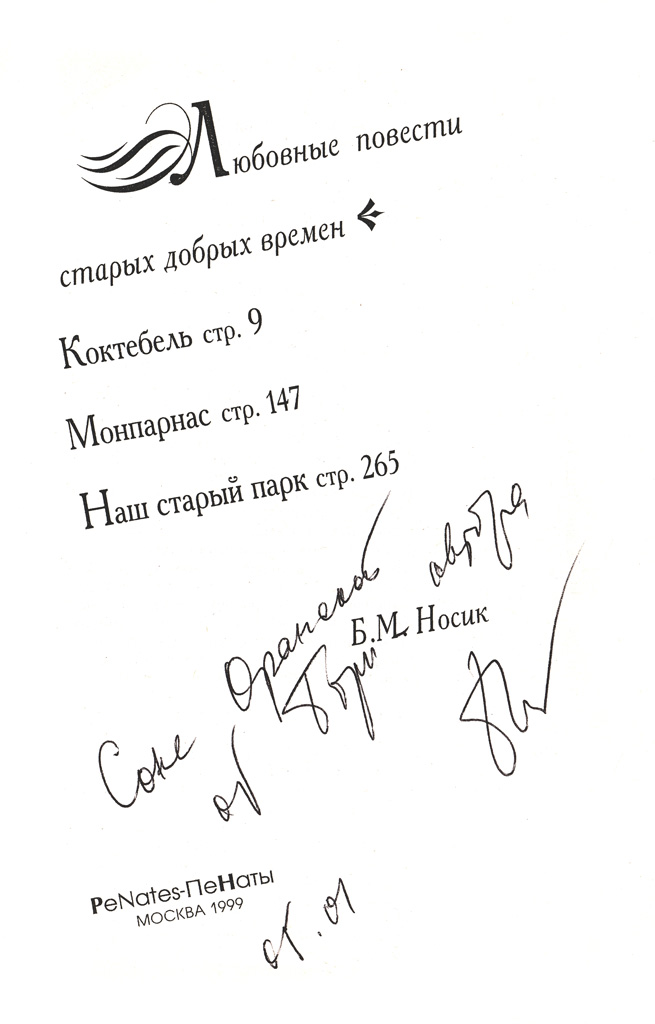 Любовные повести
старых добрых времен
Коктебель стр. 9
Монпарнас стр. 147
Наш старый парк стр. 265
Соне Оранской
от автора
Б.М. Носик
PeNates-ПеНаты
МОСКВА 1999